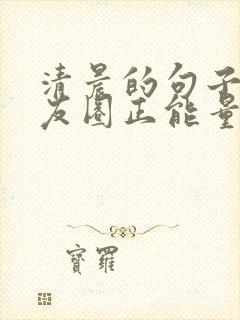 清晨的句子
友圈正能量
寶羅